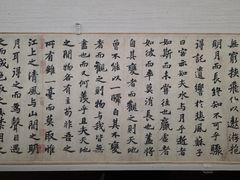 無窮挾飛仙以遨遊抱
明月而長終知不可乎驟
得託遺響於悲風蘇子
曰客亦知夫水與月乎逝者
如斯而未嘗往也盈虛者
如彼而卒莫消長也蓋將
自其變者而觀之則天地
曾不能以一瞬自其不變
者而觀之則物與我皆無
盡也而又何羨乎且夫天地
之間物各有主苟非吾之
所有雖一毫而莫取惟
江上之清風與山間之明
月耳得之而為聲目遇
之而成色取之無禁用之